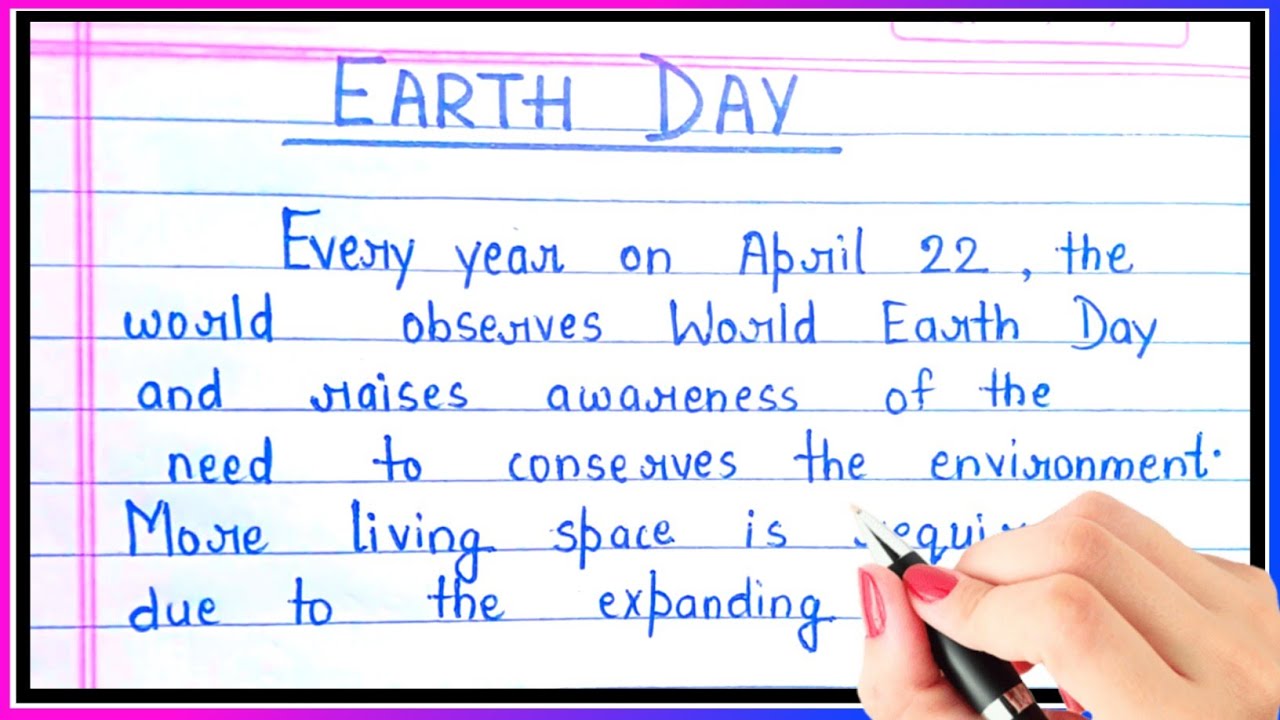 EARTH DAY
Every year on April 22, the
world observes World Earth Day
and raises awareness of the
need to conserves the environment.
More living space is
due to the expanding